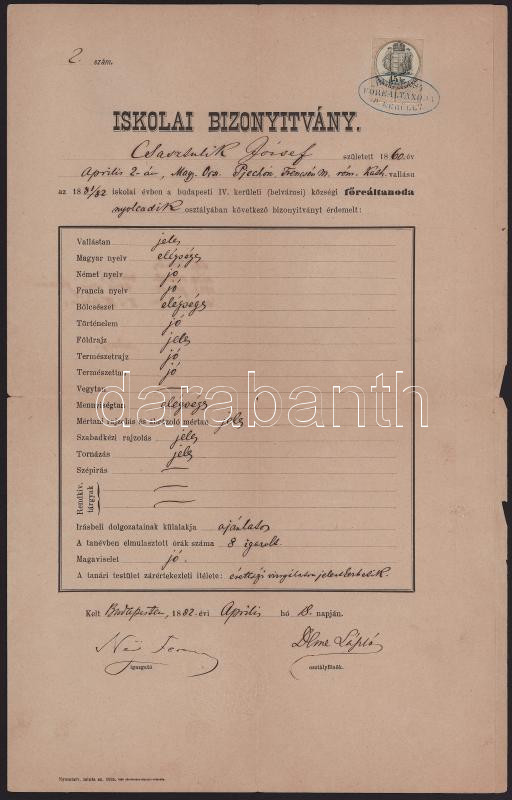 2. szám.
15
FŐREÁLTANODA
IV. KERÜLET
ISKOLAI BIZONYITVÁNY.
József született 1860. év
Április 2-án, Magy. Orsz. Trencsén m. róm. kath. vallásu
az 1881/82 iskolai évben a budapesti IV. kerületi (belvárosi) községi főreáltanoda
nyolcadik osztályában következő bizonyitványt érdemelt:
Vallástan jeles
Magyar nyelv elégséges
Német nyelv jó
Franczia nyelv jó
Bölcsészet elégséges
Történelem jó
Földrajz jeles
Természetrajz jó
Természettan jó
Vegytan
darabanth
Mennyiségtan elégséges
Mértani rajzolás és ábrázoló mértan jeles
Szabadkézi rajzolás jeles
Tornázás jeles
Szépirás
Rendkiv. tárgyak
Irásbeli dolgozatainak külalakja ajánlatos
A tanévben elmulasztott órák száma 8 igazolt.
Magaviselet jó.
A tanári testület zárértekezleti itélete: érettségi vizsgálatra jelentkezhetik.
Kelt Budapesten, 1882. évi Április hó 18. napján.
Ney Ferenc László
igazgató osztályfőnök.